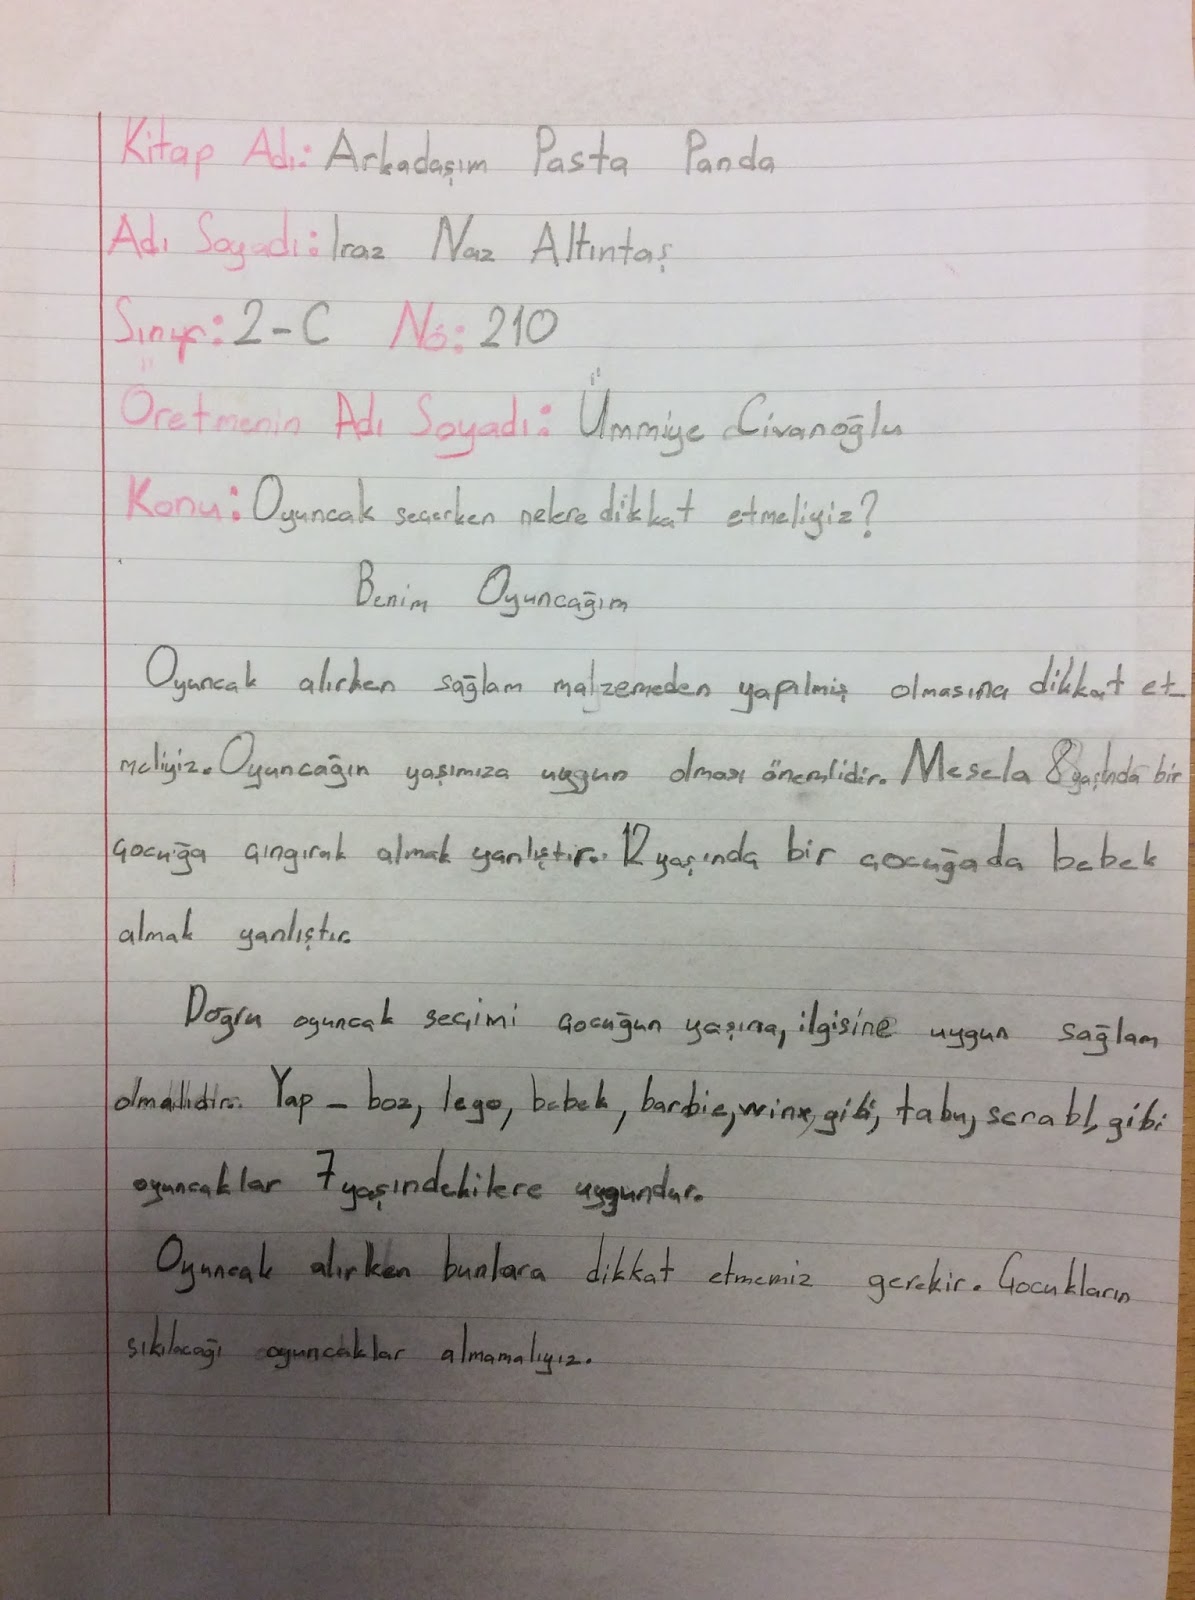 Kitap Adı: Arkadaşım Pasta Panda
Adı Soyadı: Iraz Naz Altıntaş
Sınıf: 2-C No: 210
Öretmenin Adı Soyadı: Ümmiye Civanoğlu
Konu: Oyuncak seçerken nelere dikkat etmeliyiz?
Benim Oyuncağım
Oyuncak alırken sağlam malzemeden yapılmış olmasına dikkat et-
meliyiz. Oyuncağın yaşımıza uygun olması önemlidir. Mesela 8 yaşında bir
çocuğa çıngırak almak yanlıştır. 12 yaşında bir çocuğada bebek
almak yanlıştır.
Doğru oyuncak seçimi çocuğun yaşına, ilgisine uygun sağlam
olmalıdır. Yap - boz, lego, bebek, barbie, winx, gibi, tabu, scrabl, gibi
oyuncaklar 7 yaşındekilere uygundur.
Oyuncak alırken bunlara dikkat etmemiz gerekir. Çocukların
sıkılacağı oyuncaklar almamalıyız.